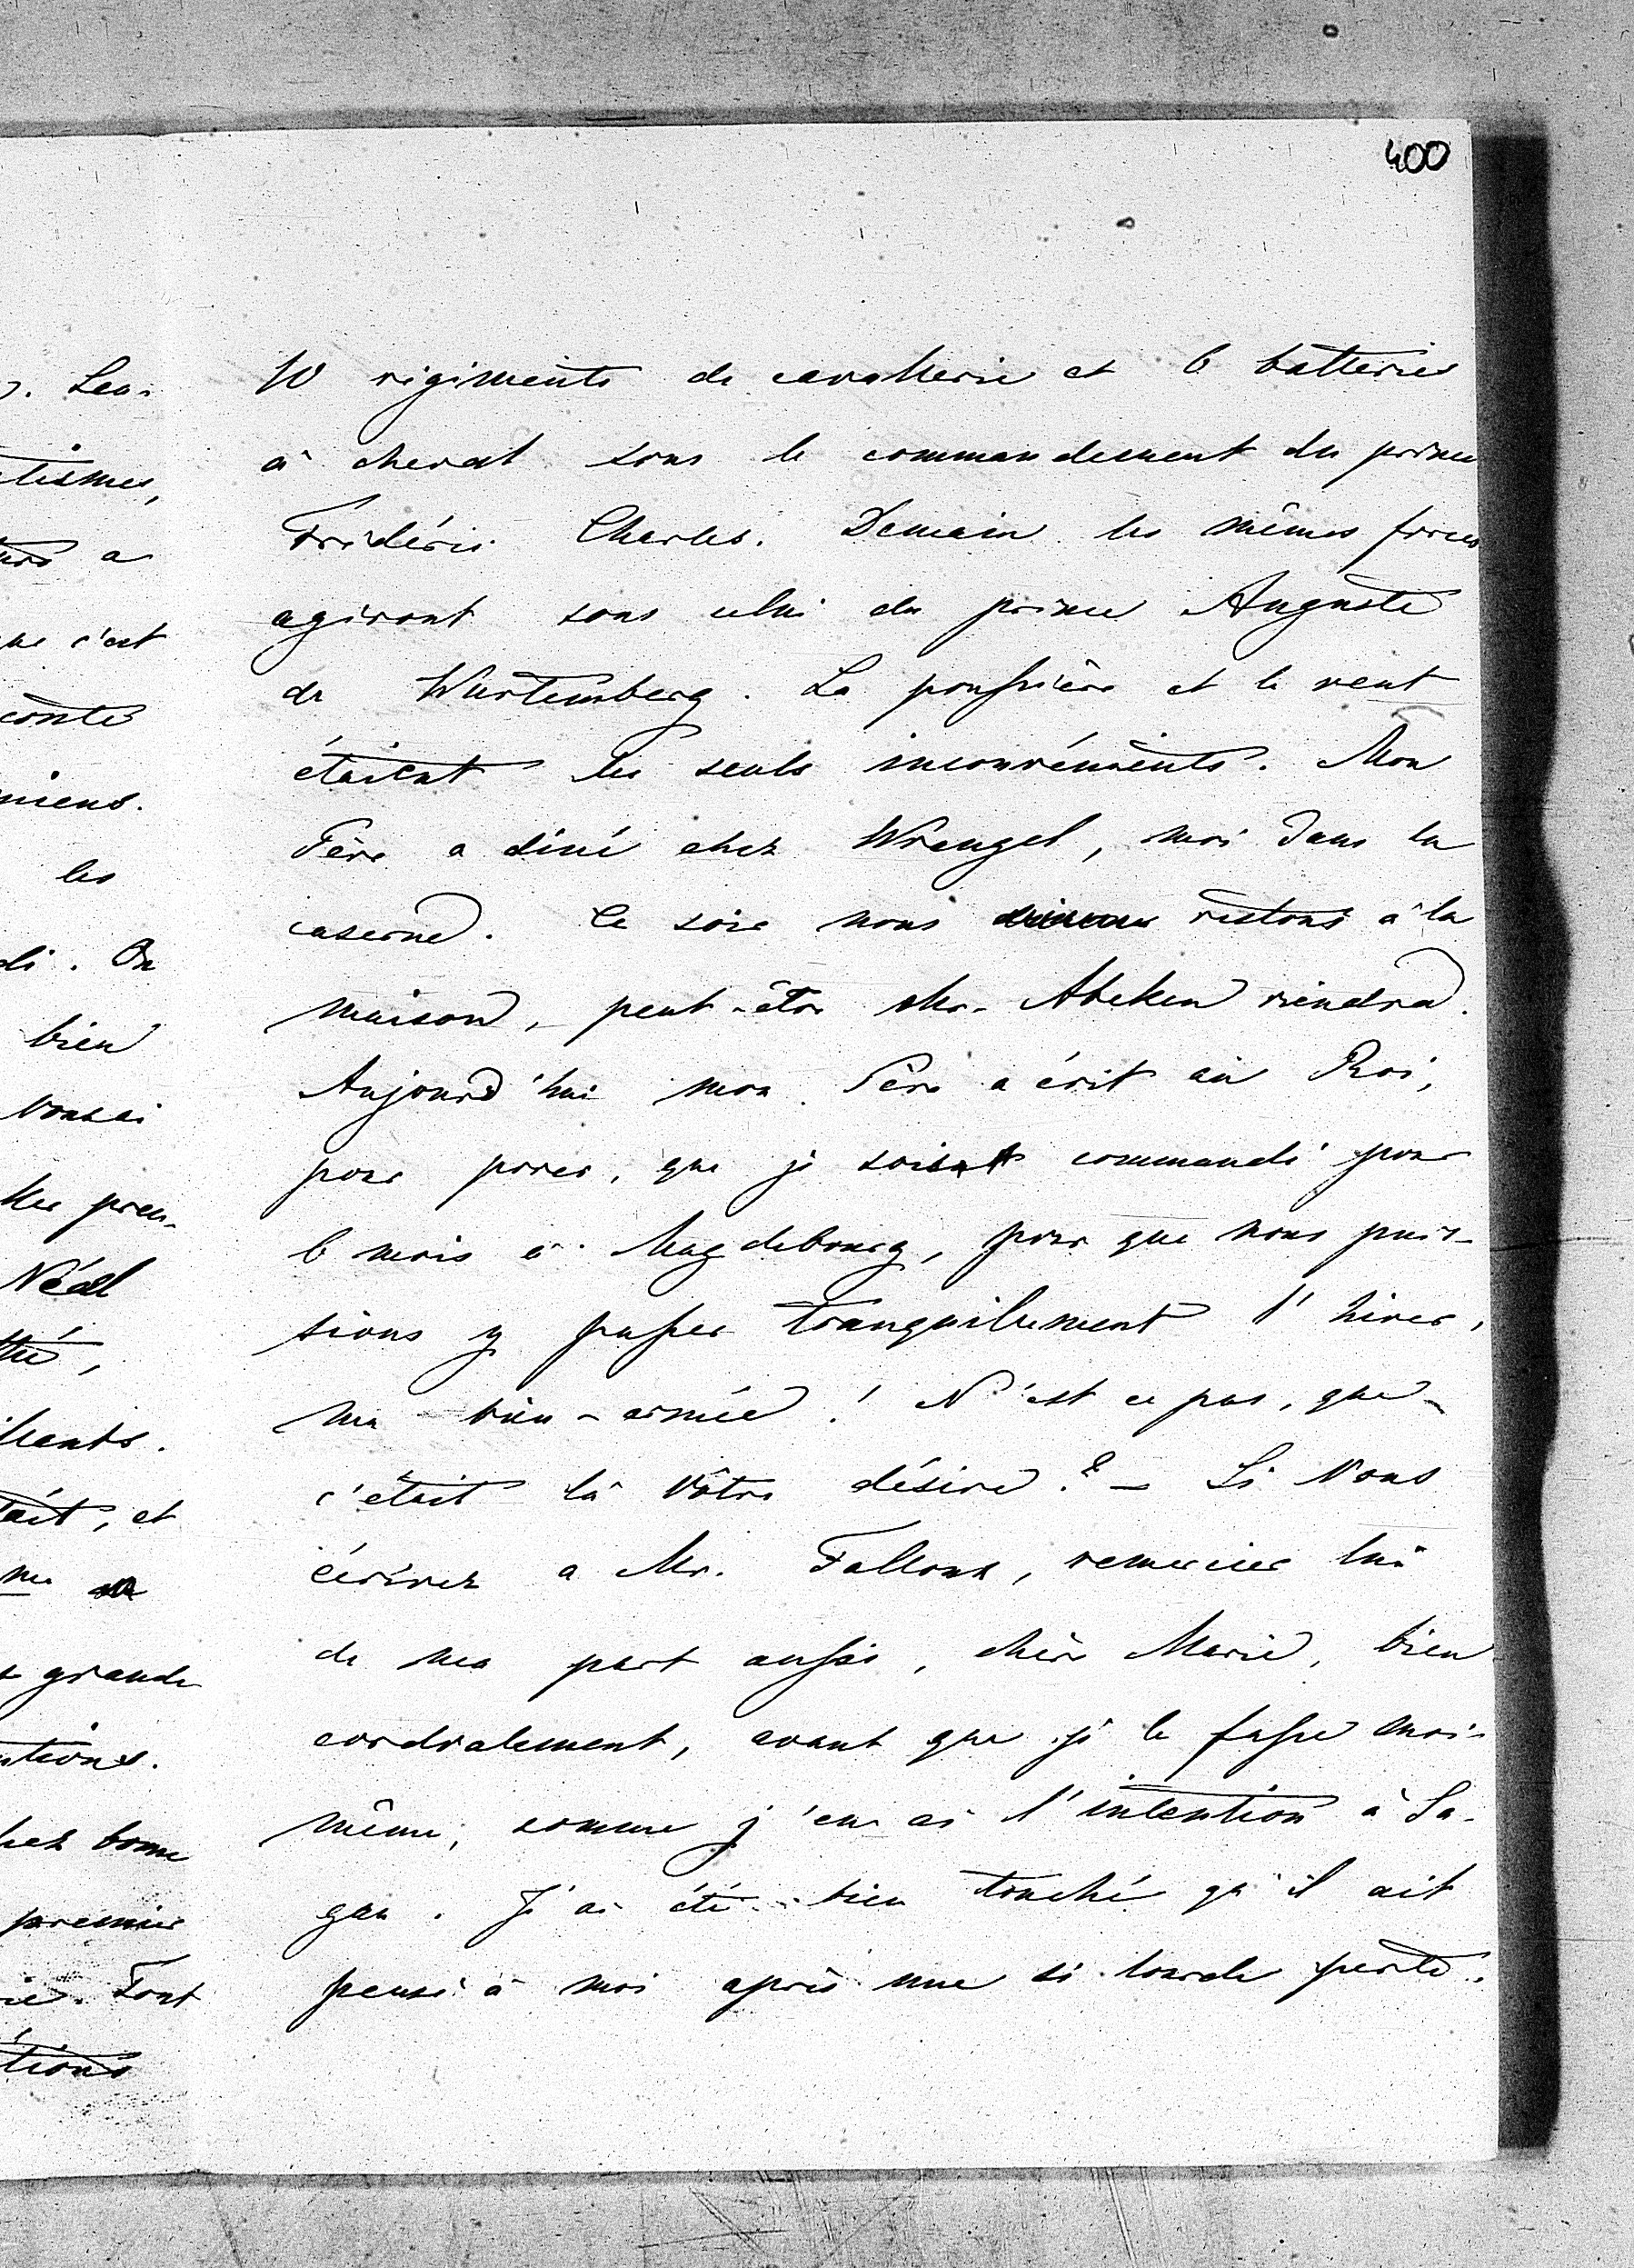 400
10 régiments de cavallerie et 6 batteries
à cheval sous le commandement du prince
Frédéric Charles. Demain les mêmes forces
agiront sous celui du prince Auguste
de Würtemberg. La poussière et le vent
étaient les seuls inconvénients. Mon
Père a diné chez Wrangel, moi dans la
caserne. Ce soir nous restons à la
maison, peut-être Mr. Abeken viendra.
Aujourd'hui mon Père a écrit au Roi,
pour prier, que je sois commandé pour
6 mois à Magdebourg, pour que nous puis-
sions y passer tranquilement l'hiver,
ma bien-aimée! N'est ce pas, que
c'était là Vôtre désire? – Si Vous
écrivez a Mr. Falloux, remerciez lui
de ma part aussi, chère Marie, bien
cordialement, avant que je le fasse moi-
même, comme j'en ai l'intention à Sa-
gan. J'ai été bien touché qu'il ait
pensé à moi après une si lourde perte.
Leur
tismes,
a
c'est
conté
miens.
les
di. On
bien
Néal
et
grande
tions.
bonne
premier
Tout
tions